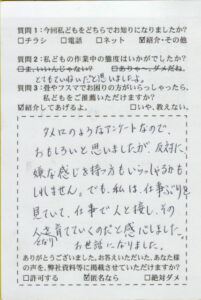 質問1:今回私どもをどちらでお知りになりましたか?
□チラシ □電話 □ネット ☑紹介・その他
質問2:私どもの作業中の態度はいかがでしたか?
□ま、いいんじゃない? □ありゃ〜、ダメだね。
とてもていねいだと思いましたよ。
質問3:畳やフスマでお困りの方がいらっしゃったら、
私どもをご推薦いただけますか?
☑紹介してあげるよ。 □いや、教えない。
タメ口のようなアンケートなので、
おもしろいと思いましたが、反対に、
嫌な感じを持つ方もいらっしゃるかも
しれません。でも、私は、仕事ぶりを
見ていて、仕事で人と接し、その
人となり
育っていくのだと感じました。
お世話になりました。
ありがとうございました。お答えいただいた、あなた様
の声を、弊社資料等に掲載させていただけますか?
□許可する ☑匿名なら □絶対ダメ